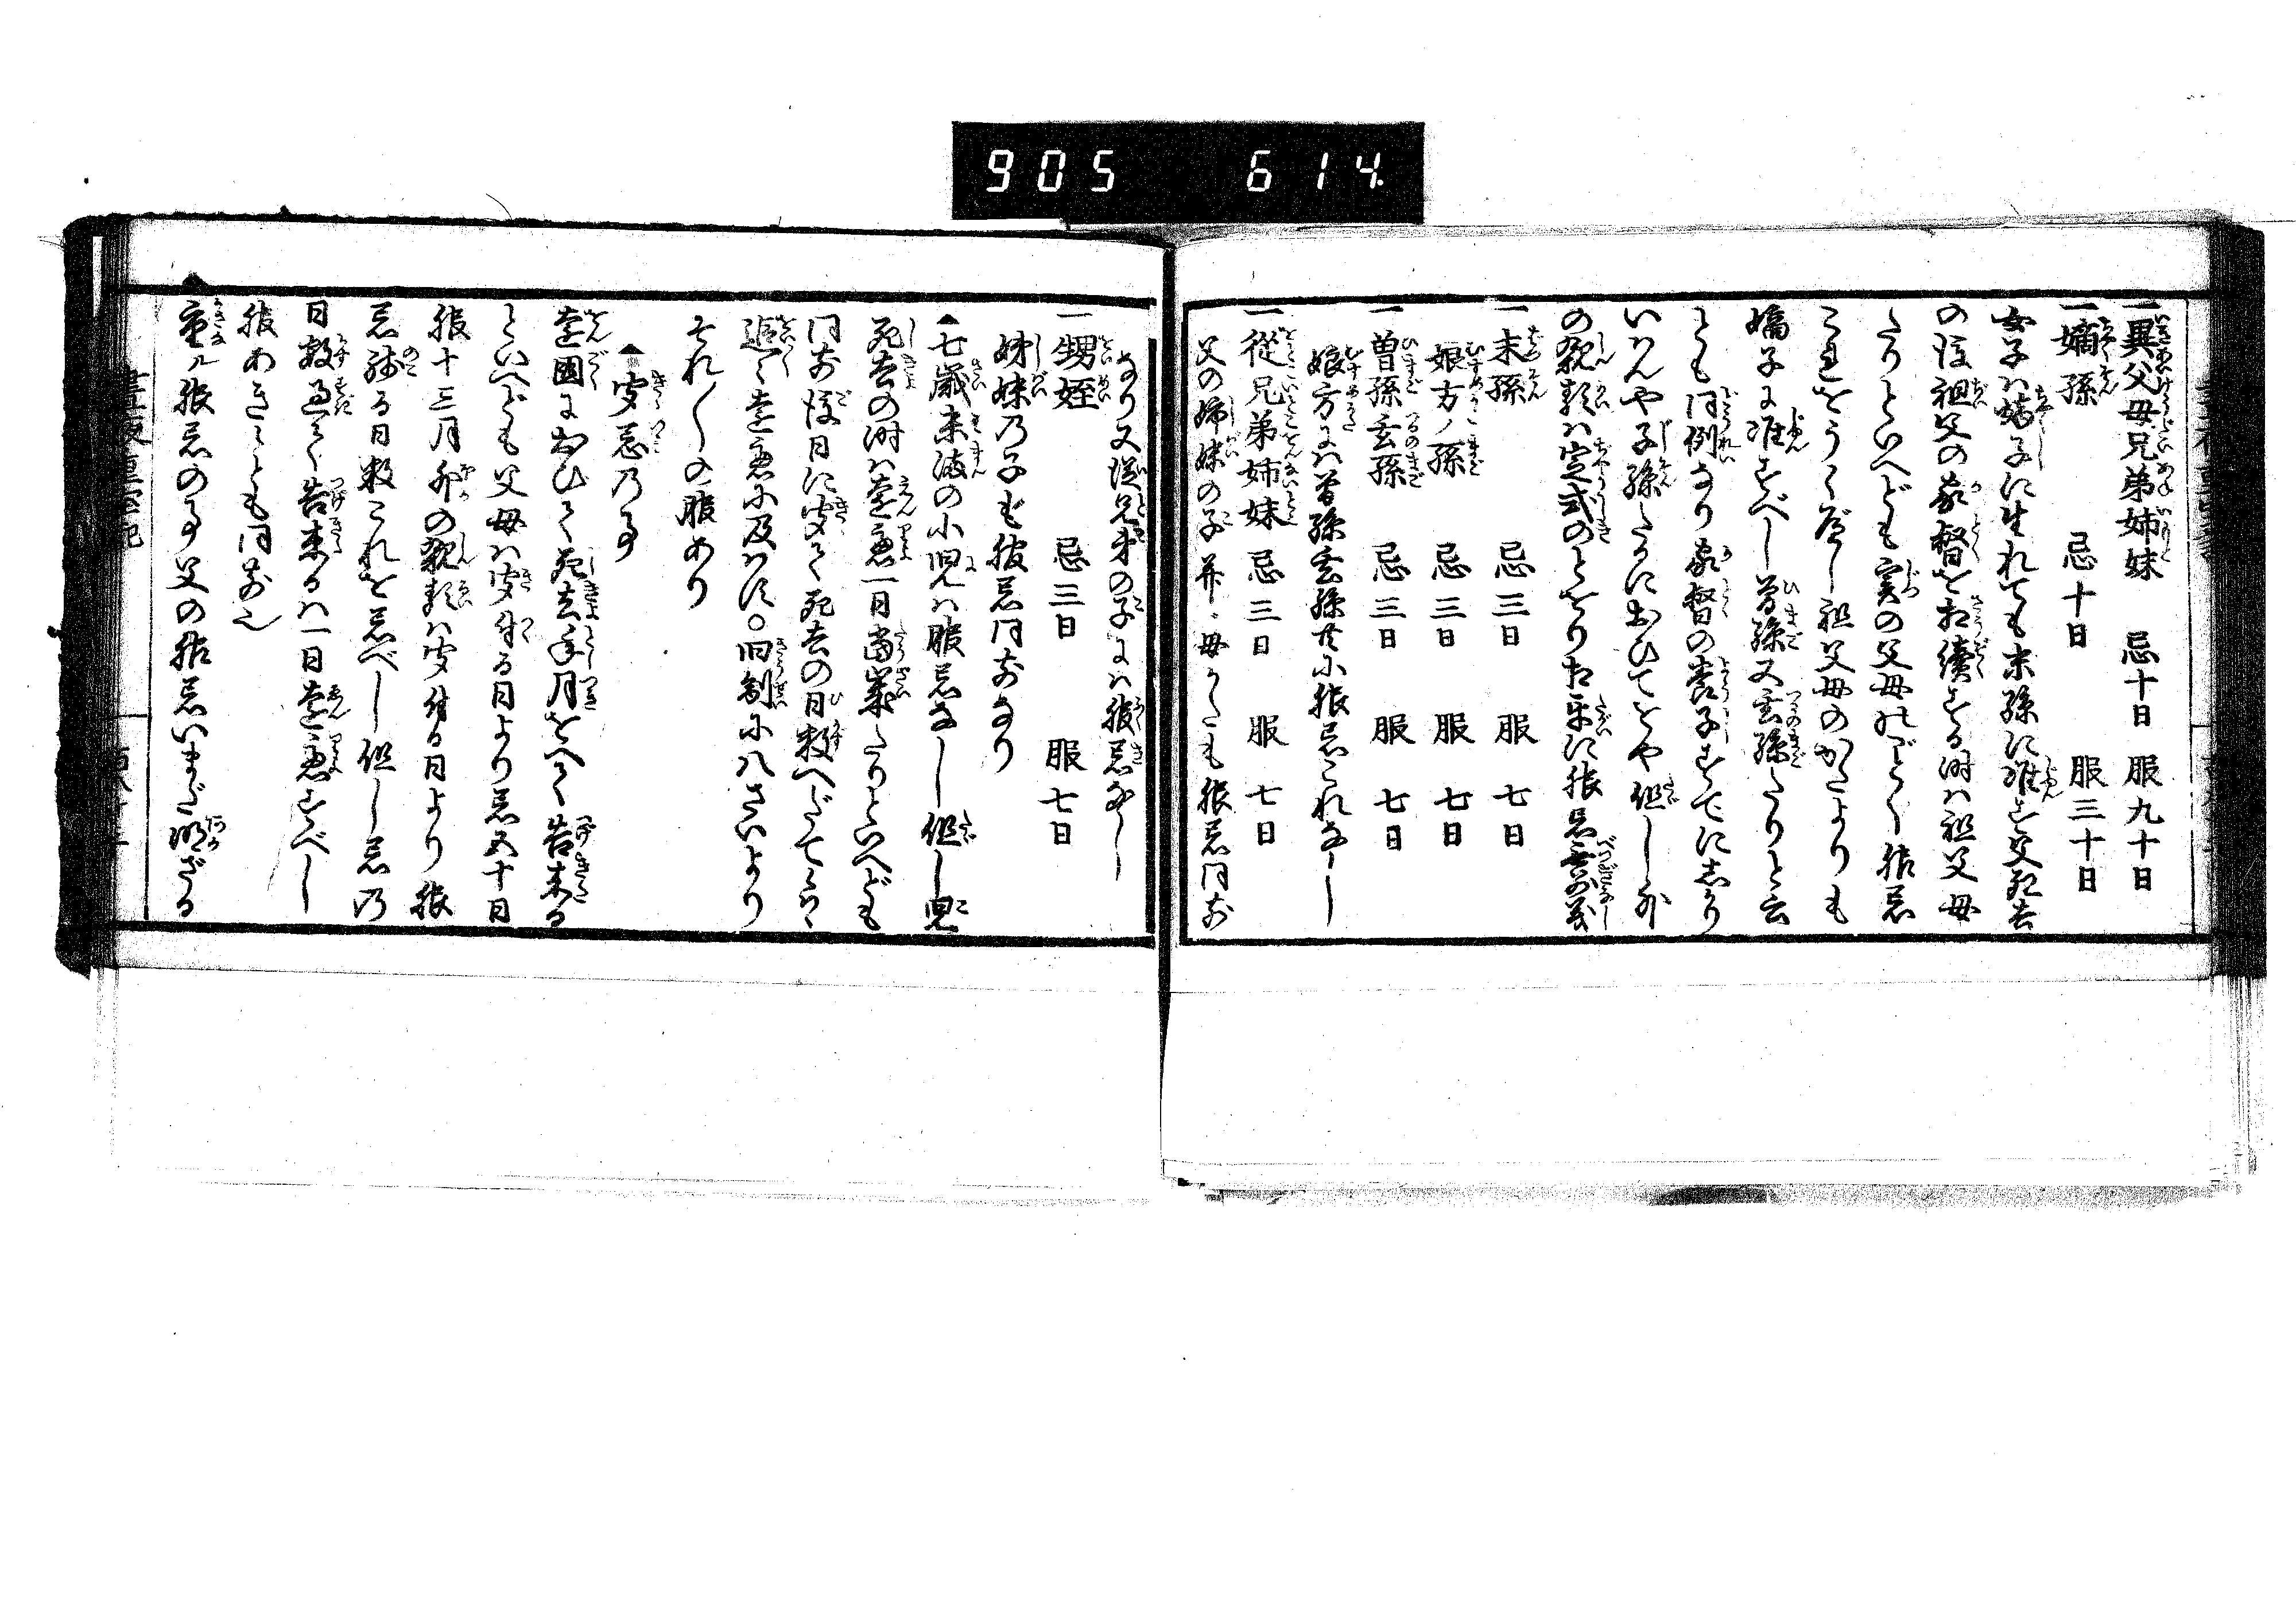 905 614
一異父母兄弟姉妹 忌十日 服九十日
一嫡孫 忌十日 服三十日
女子ハ嫡子に生れても末孫に准ず父死去
の後祖父の家督を相續する時ハ祖父母
たりといへども実の父母のごとく服忌
これをうくべし祖父母のかたよりも
嫡子に准ずべし曽孫又玄孫たりと云
とも同例なり家督の養子すでにしかり
いはんや子孫たるにおひてをや但し外
の親類ハ定式のとをり相互に服忌無別義
一末孫 忌三日 服七日
娘方ノ孫 忌三日 服七日
一曽孫玄孫 忌三日 服七日
娘方にハ曽孫玄孫共に服忌これなし
一從兄弟姉妹 忌三日 服七日
父の姉妹の子并ニ母かたも服忌同前
なり又従兄弟の子にハ服忌なし
一甥姪 忌三日 服七日
姉妹乃子も服忌同前なり
▲七歳未満の小児ハ服忌なし但し児
死去の時ハ遠慮一日當歳たりといへども
同前後日に聞て死去の日数へだてらハ
追て遠慮に及ハず〇旧制に八さいより
それ〳〵の服あり
▲聞忌乃事
遠國におひて死去年月をへて告来る
といへども父母ハ聞付る日より忌五十日
服十三月外の親類ハ聞付る日より服
忌残る日数これを忌べし但し忌乃
日数過て告来るハ一日遠慮すべし
服あきことも同前也
重ル服忌の事父の服忌いまだ明ざる